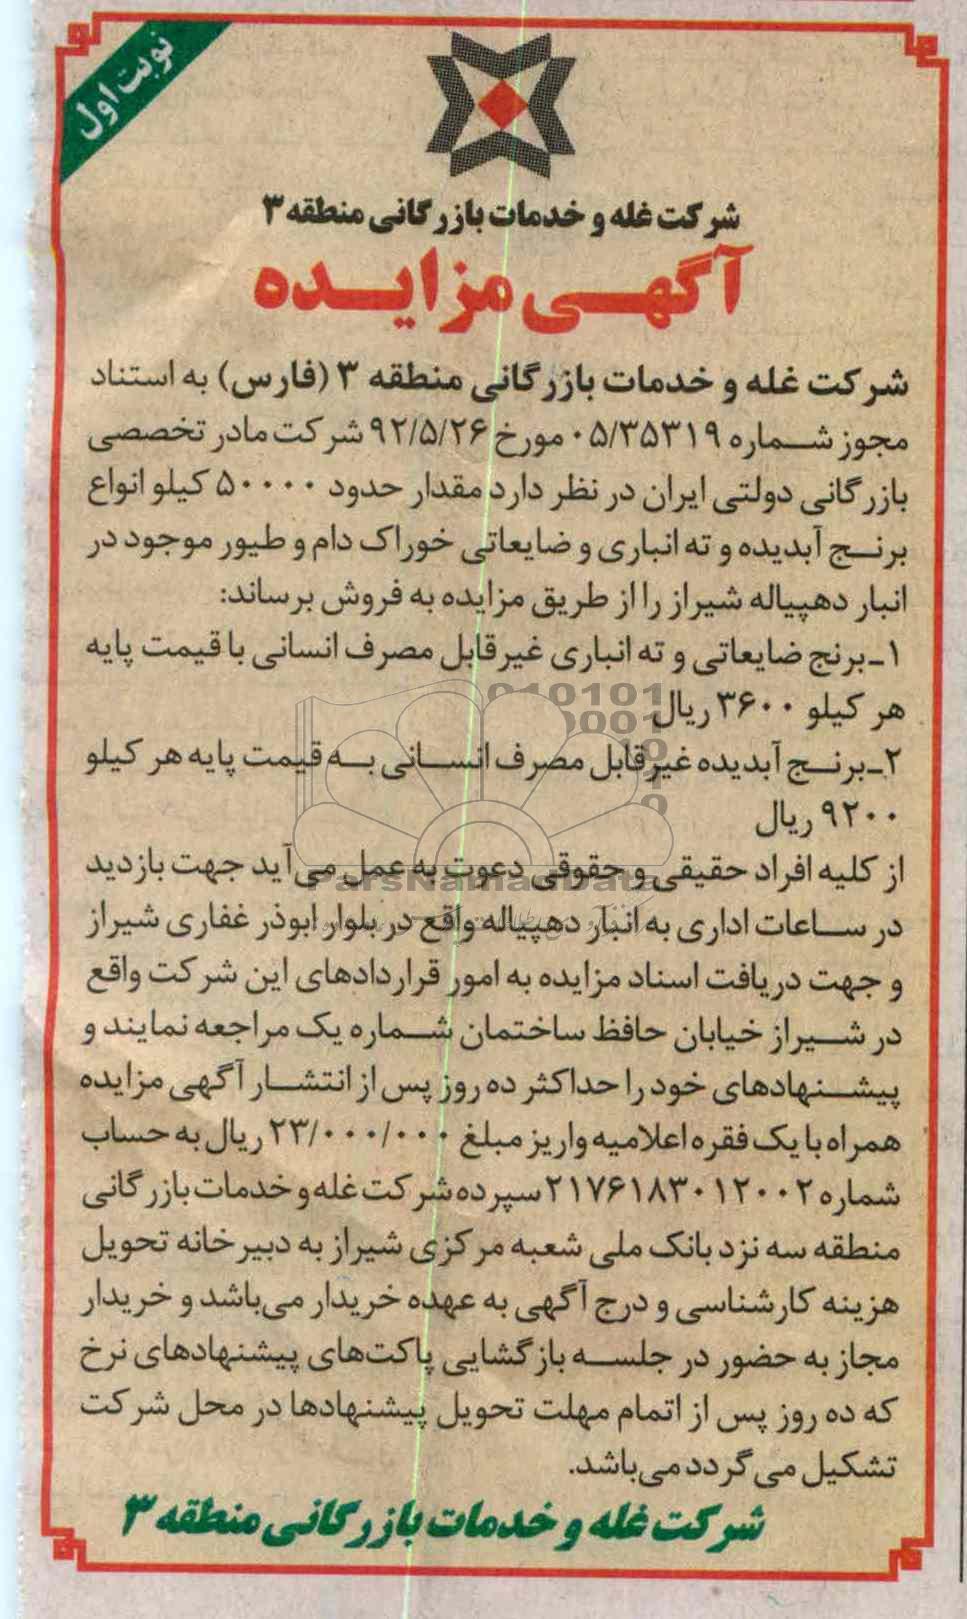 نوبت اول
شرکت غله و خدمات بازرگانی منطقه ۳
آگهی مزایده
شرکت غله و خدمات بازرگانی منطقه ۳ (فارس) به استناد
مجوز شماره ۰۵/۳۵۳۱۹ مورخ ۹۲/۵/۲۶ شرکت مادر تخصصی
بازرگانی دولتی ایران در نظر دارد مقدار حدود ۵۰۰۰۰ کیلو انواع
برنج آبدیده و ته انباری و ضایعاتی خوراک دام و طیور موجود در
انبار دهپیاله شیراز را از طریق مزایده به فروش برساند:
۱ـ برنج ضایعاتی و ته انباری غیرقابل مصرف انسانی با قیمت پایه
هر کیلو ۳۶۰۰ ریال
۲ـ برنج آبدیده غیرقابل مصرف انسانی به قیمت پایه هر کیلو
۹۲۰۰ ریال
از کلیه افراد حقیقی و حقوقی دعوت به عمل می‌آید جهت بازدید
ParsNamadData
در ساعات اداری به انبار دهپیاله واقع در بلوار ابوذر غفاری شیراز
و جهت دریافت اسناد مزایده به امور قراردادهای این شرکت واقع
در شیراز خیابان حافظ ساختمان شماره یک مراجعه نمایند و
پیشنهادهای خود را حداکثر ده روز پس از انتشار آگهی مزایده
همراه با یک فقره اعلامیه واریز مبلغ ۲۳/۰۰۰/۰۰۰ ریال به حساب
شماره ۲۱۷۶۱۸۳۰۱۲۰۰۲ سپرده شرکت غله و خدمات بازرگانی
منطقه سه نزد بانک ملی شعبه مرکزی شیراز به دبیرخانه تحویل
هزینه کارشناسی و درج آگهی به عهده خریدار می‌باشد و خریدار
مجاز به حضور در جلسه بازگشایی پاکت‌های پیشنهادهای نرخ
که ده روز پس از اتمام مهلت تحویل پیشنهادها در محل شرکت
تشکیل می‌گردد می‌باشد.
شرکت غله و خدمات بازرگانی منطقه ۳